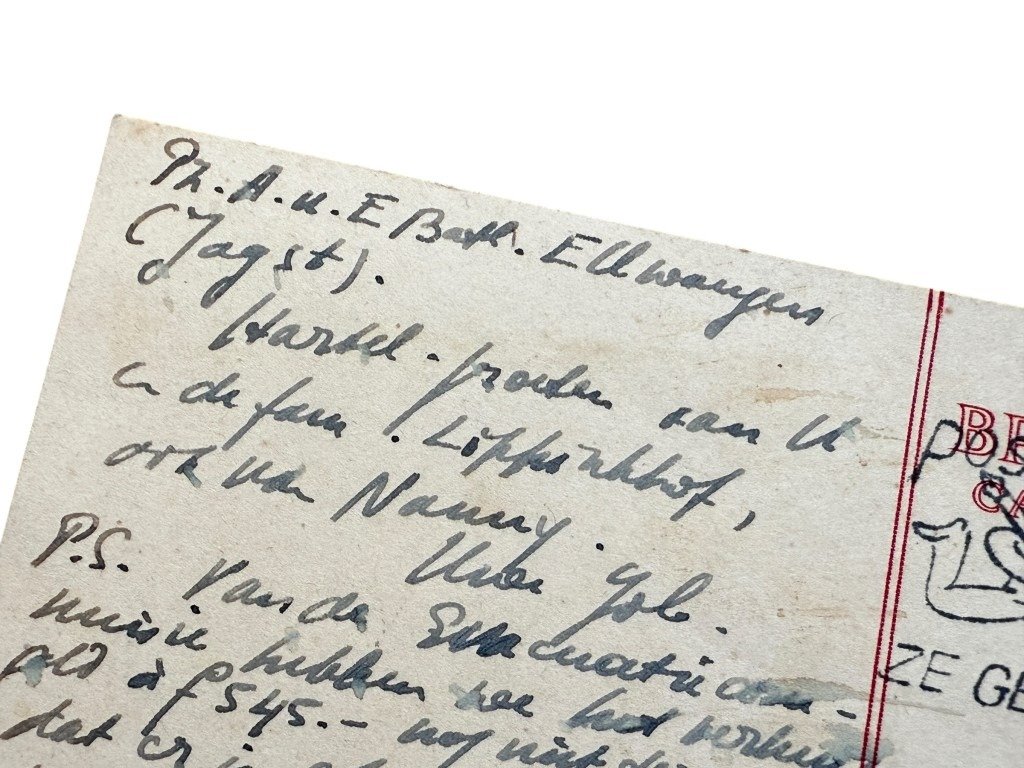 Ph. A. u. E Barth. Ellwangen
(Jagst).
Hartel. groeten van U
en de fam. Lippinkhof,
ook van Nanny.
Uwe Joh.
P.S. Van de Evacuatiecom-
missie hebben we het verhuis
geld à ƒ 545.- nog niet
dat er
BR
CA
POS
ZE GE